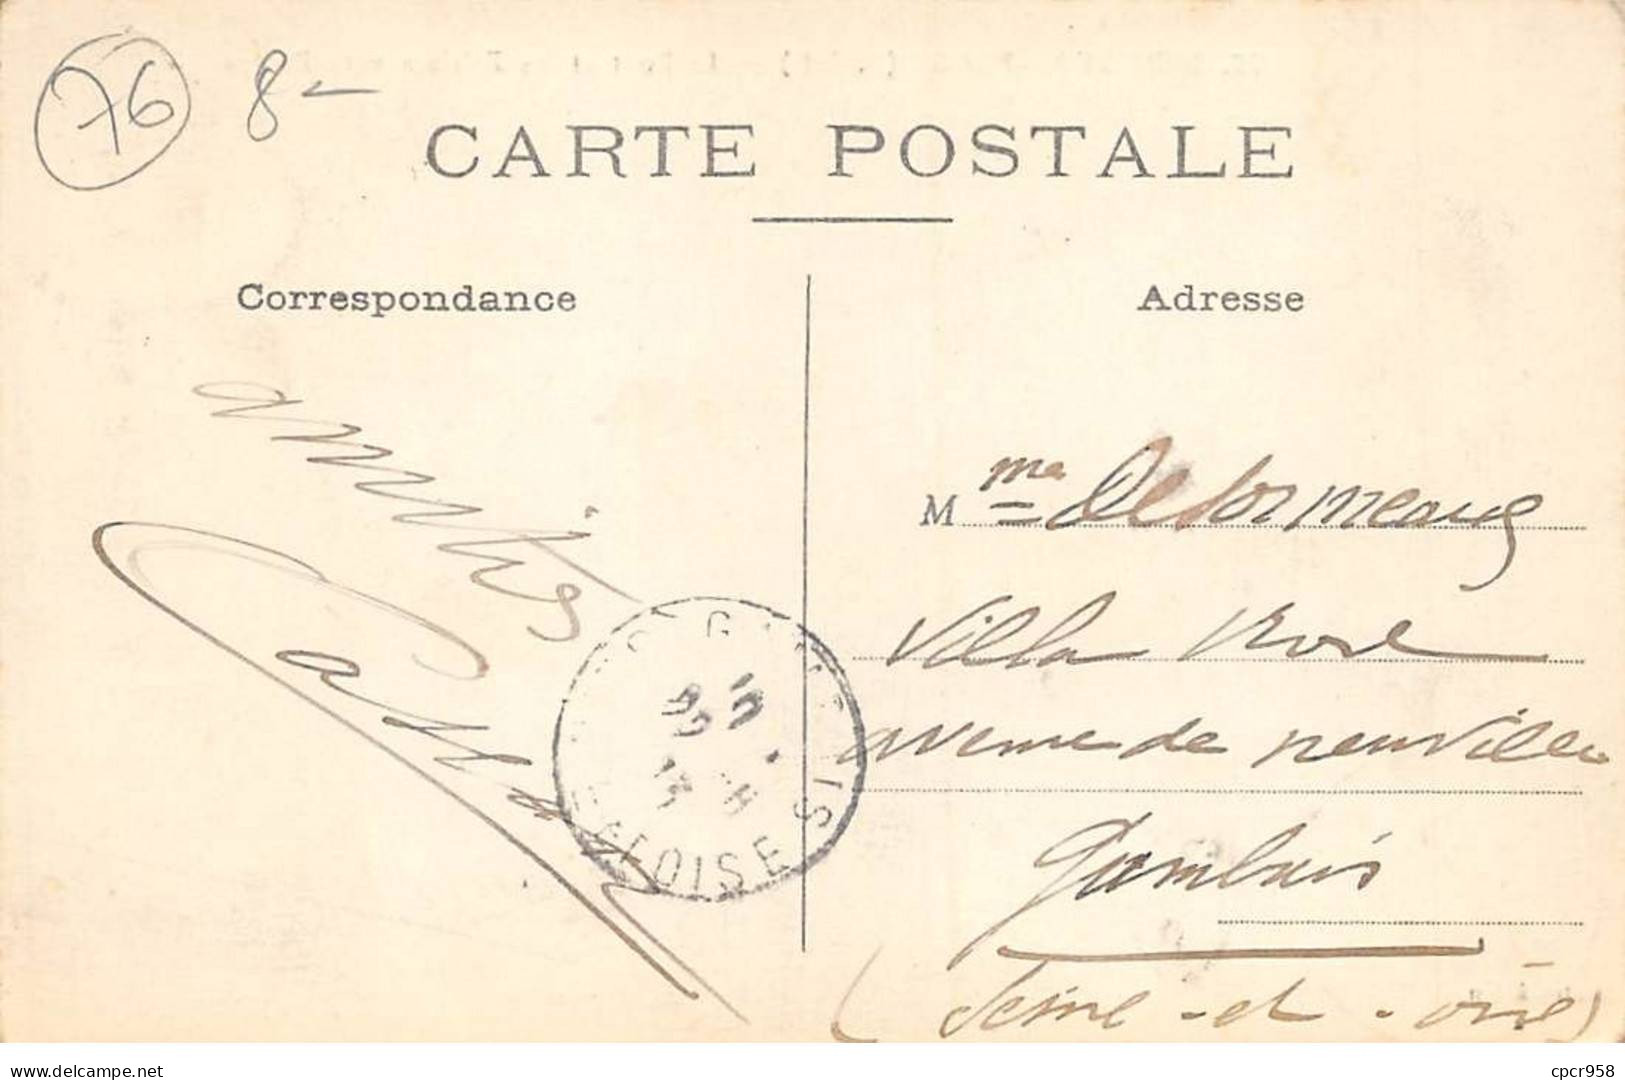 76 8-
CARTE POSTALE
Correspondance
Adresse
amitiés
M me Deformeaux
Villa Rose
avenue de neuville
Gambais
(Seine-et-oise)
G
OISE
www.delcampe.net
cpcr958